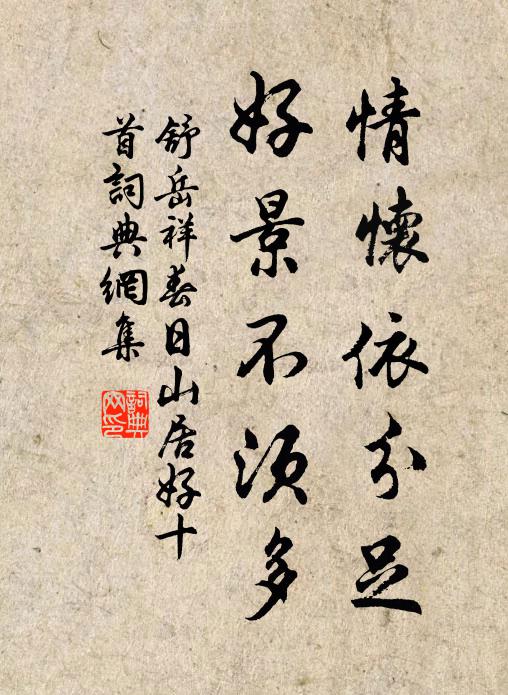 情懷依分足
好景不須多
舒岳祥春日山居好十
首詞典網集
詞典網印